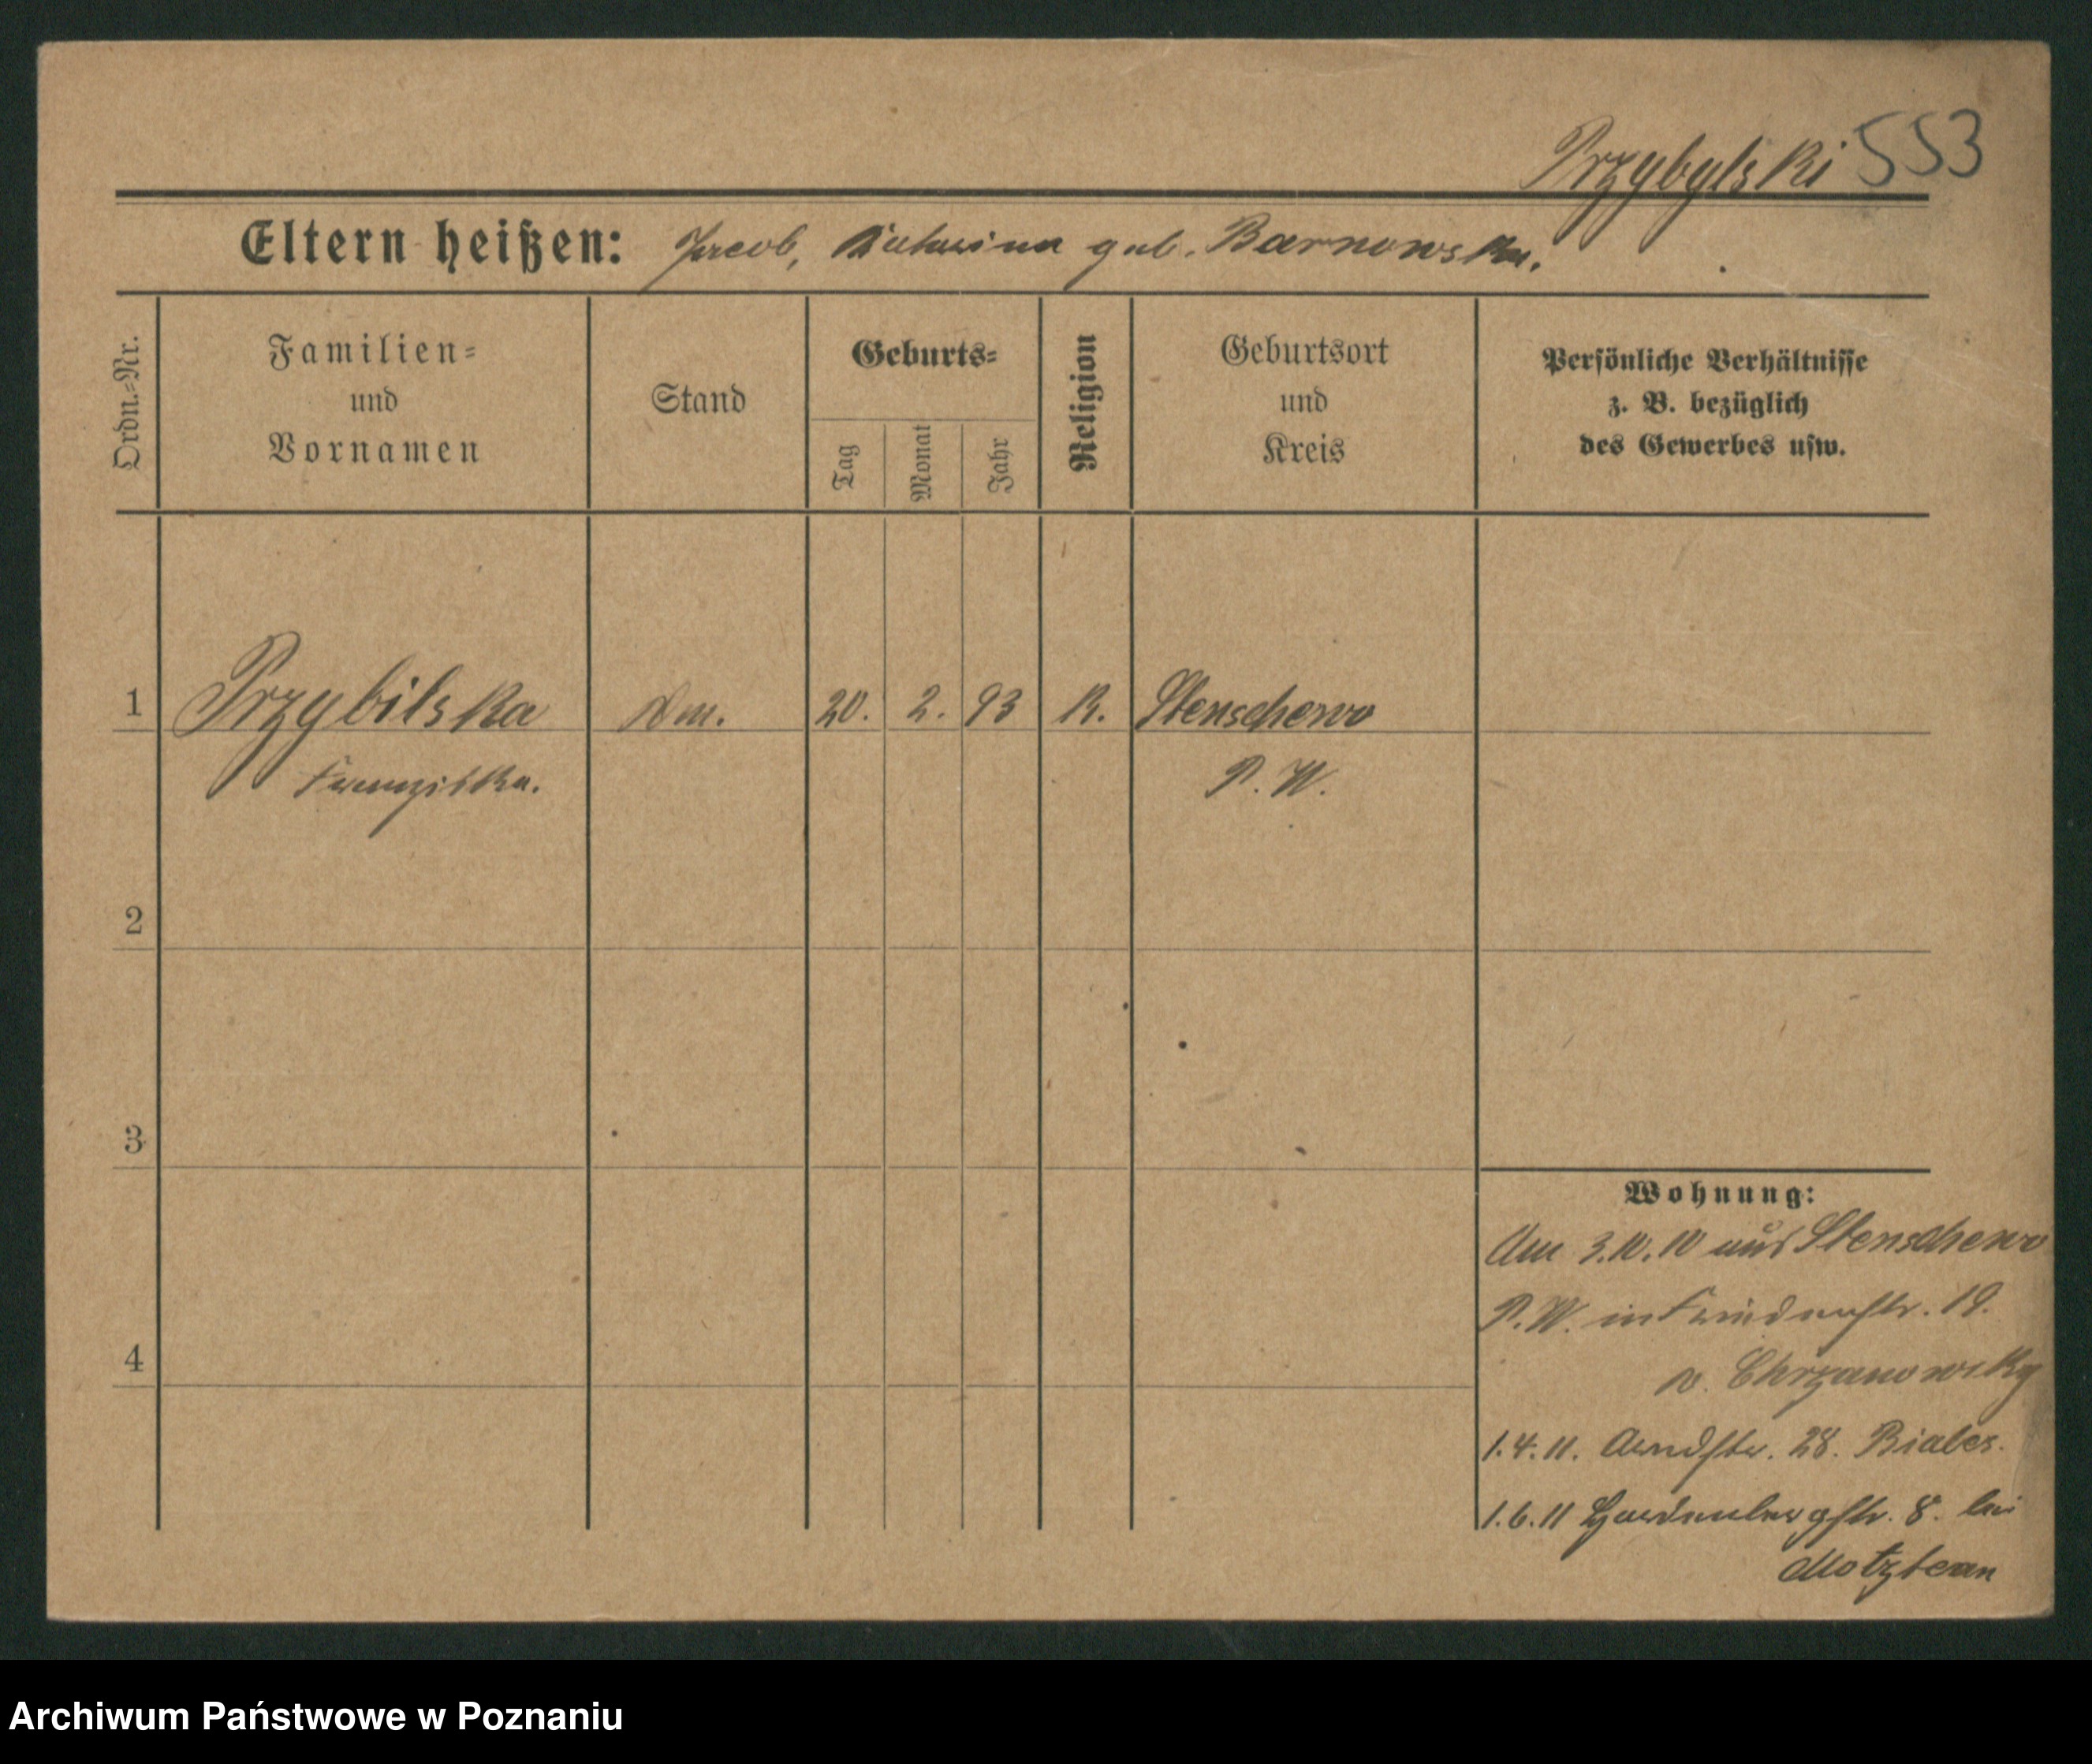 Przybylski 553
Eltern heißen: Jacob, Katarina geb. Barnowska.
Ordn.-Nr.
Familien-
und
Vornamen
Stand
Geburts-
Tag
Monat
Jahr
Religion
Geburtsort
und
Kreis
Persönliche Verhältnisse
z. B. bezüglich
des Gewerbes usw.
1 Przybilska 20. 2. 93 K. Stenschewo
Franziska. P. W.
2
3
4
Wohnung:
Am 3.10.10 aus Stenschewo
P. W. in Friedrichstr. 19.
v. Chrzanowsky
1.4.11. Arndtstr. 28. Biales.
1.6.11 Hardenbergstr. 8. bei
Archiwum Państwowe w Poznaniu